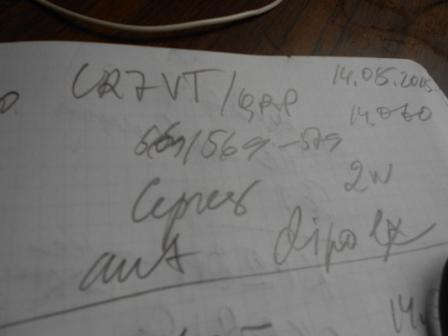 UR7VT/QRP 14.05.2015
14.060
569/569-579
Сергей 2w
ant dipole
14.